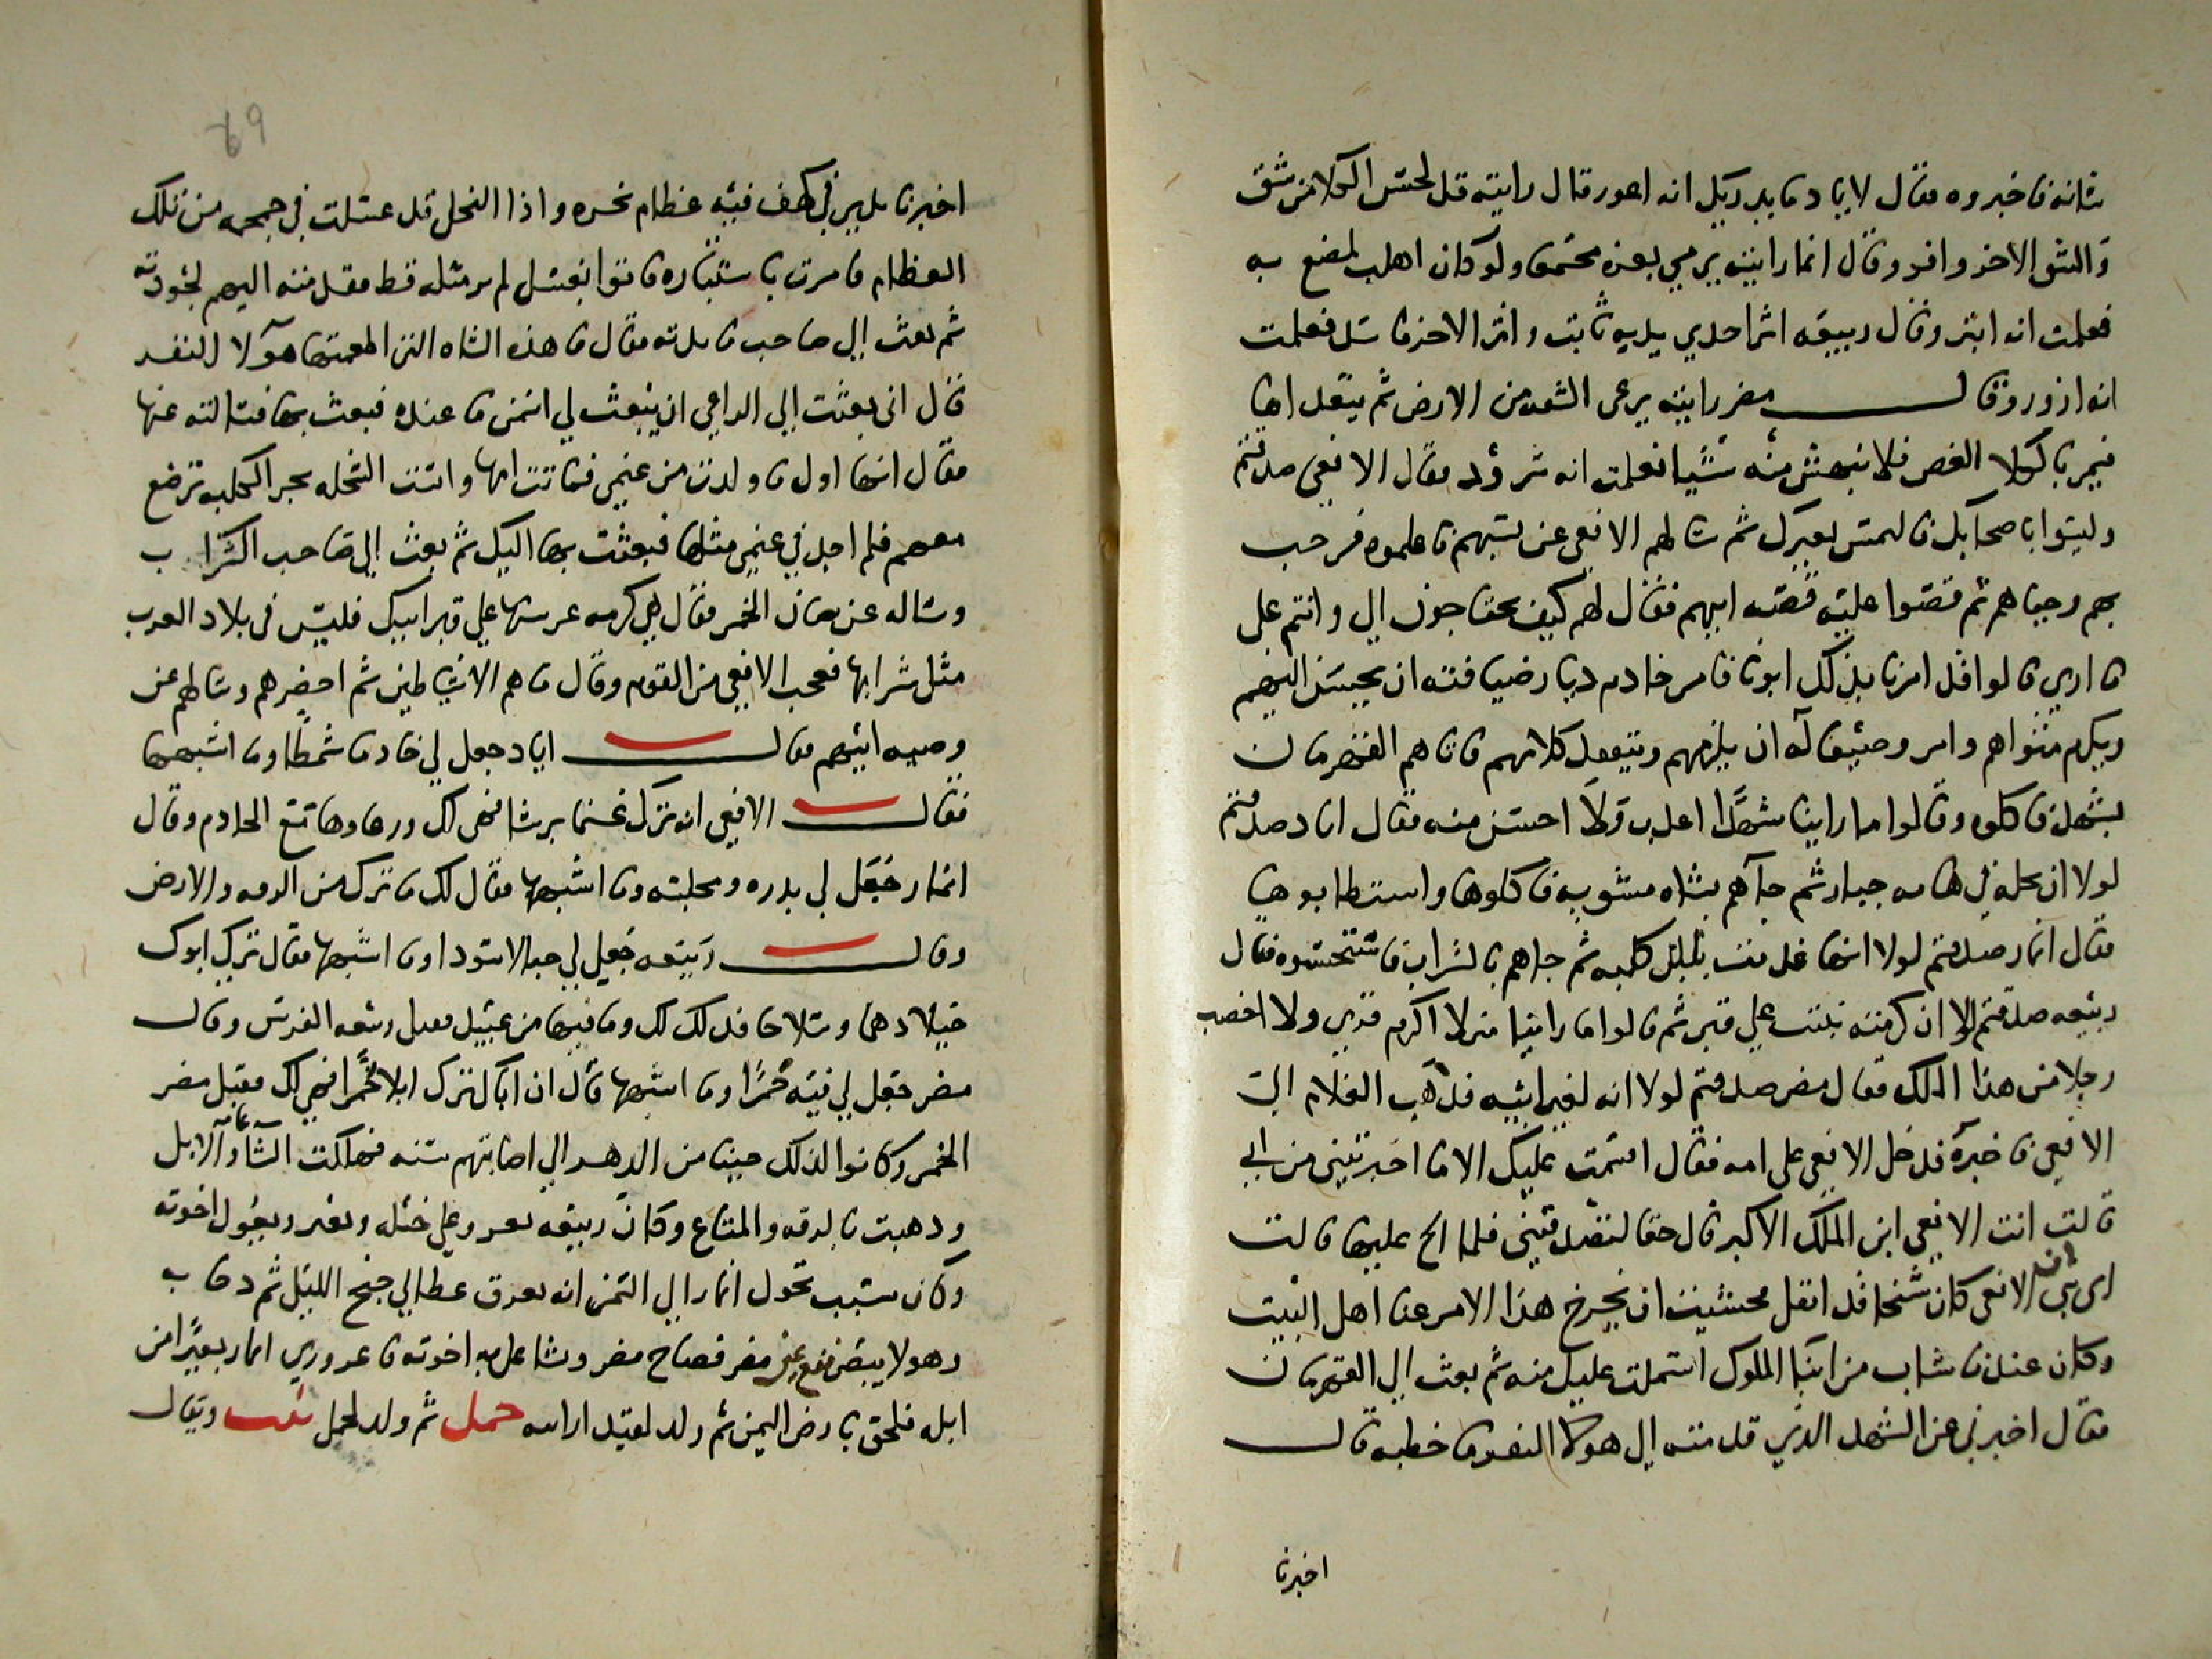 شانه فاخبروه فقال لاياد ما يدريك انه اعور قال رايته قد لحس الكلا من شق
والشق الاخر وافر وقال انمار رايته يرمي بعره مجتمعا ولو كان اهلب لمصع به
فعلمت انه ابتر وقال ربيعه اثر احدي يديه ثابت واثر الاخر فاسد فعلمت
انه ازور وقال مضر رايته يرعى الشقه من الارض ثم يتعداها
فيمر بالكلا الغض فلا ينهش منه شيا فعلمت انه شرود فقال الافعى صدقتم
وليسوا باصحابك فالتمس بعيرك ثم سالهم الافعى عن نسبهم فاعلموه فرحب
بهم وحياهم ثم قصوا عليه قصة ابيهم فقال لهم كيف تحتاجون الي وانتم على
ما اري قالوا قد امرنا بذلك ابونا فامر خادم دار ضيافته ان يحسن اليهم
ويكرم مثواهم وامر وصيفا له ان يلزمهم ويتفقد كلامهم فاتاهم القهرمان
بشهد فاكلوه وقالوا ما راينا شهدا اعذب ولا احسن منه فقال اياد صدقتم
لولا ان نحله في هامه جبار ثم جاهم بشاه مشويه فاكلوها واستطابوها
فقال انمار صدقتم لولا انها غذيت بلبن كلبه ثم جاهم بالشراب فاستحسنوه فقال
ربيعه صدقتم لولا ان كرمته نبتت علي قبر ثم قالوا ما راينا منزلا اكرم قري ولا اخصب
رحلا من هذا الملك فقال مضر صدقتم لولا انه لغير ابيه فذهب الغلام الى
الافعى فاخبره فدخل الافعى على امه فقال اقسمت عليك الا ما اخبرتيني من ابي
قالت انت الافعى ابن الملك الاكبر قال حقا لتصدقيني فلما الح عليها قالت
اي بني ان الافعى كان شيخا قد اثقل فخشيت ان يخرج هذا الامر عنا اهل البيت
وكان عندنا شاب من ابنا الملوك اشتملت عليك منه ثم بعث الي القهرمان
فقال اخبرني عن الشهد الذي قدمته الي هولا النفر ما خطبه قال
اخبرنا
69
اخبرنا بدبر في كهف فيه عظام نخره واذا النحل قد عسلت في جمجمه من تلك
العظام فامرت باشتياره فاتوا بعسل لم ير مثله قط فقدمته اليهم لجودته
ثم بعث الي صاحب مايدته فقال ما هذه الشاه التي اطعمتها هولا النفر
قال اني بعثت الي الراعي ان يبعث لي اسمن ما عنده فبعث بها فسالته عنها
فقال انها اول ما ولدت من غنمي فماتت امها وانست السخله بجرا الكلبه ترضع
معهم فلم اجد في غنمي مثلها فبعثت بها اليك ثم بعث الي صاحب الشراب
وساله عن شان الخمر فقال هي كرمه غرستها علي قبر ابيك فليس في بلاد العرب
مثل شرابها فعجب الافعي من القوم وقال ما هم الا شياطين ثم احضرهم وسالهم عن
وصيه ابيهم فقال اياد جعل لي خادما شمطا وما اشبهها
فقال الافعي انه ترك غنما برشا فهي لك ورعاوها مع الخادم وقال
انمار جعل لي بدره ومجلسه وما اشبهها فقال لك ما ترك من الرقه والارض
وقال ربيعه جعل لي حبالا سودا وما اشبهها فقال ترك ابوك
خيلا دهما وسلاحا فذلك لك وما فيها من عبيد فقيل ربيعه الفرس وقال
مضر جعل لي قبه حمرا وما اشبهها قال ان اباك ترك ابلا حمرا فهي لك فقيل مضر
الحمر وكانوا لذلك حينا من الدهر الي اصابتهم سنه فهلكت الشا وآلابل
وذهبت بالرقه والمتاع وكان ربيعه يغزو علي خيله ويغير ويعول اخوته
وكان سبب تحول انمار الي اليمن انه تعرق عظما في جنح الليل ثم دحا به
وهو لا يبصر فوقع في عين مضر فصاح مضر وتشاغل به اخوته فاعروري انمار بعيرا من
ابله فلحق بارض اليمن ثم ولد لقيدار ابنه حمل ثم ولد لحمل نبت ويقال